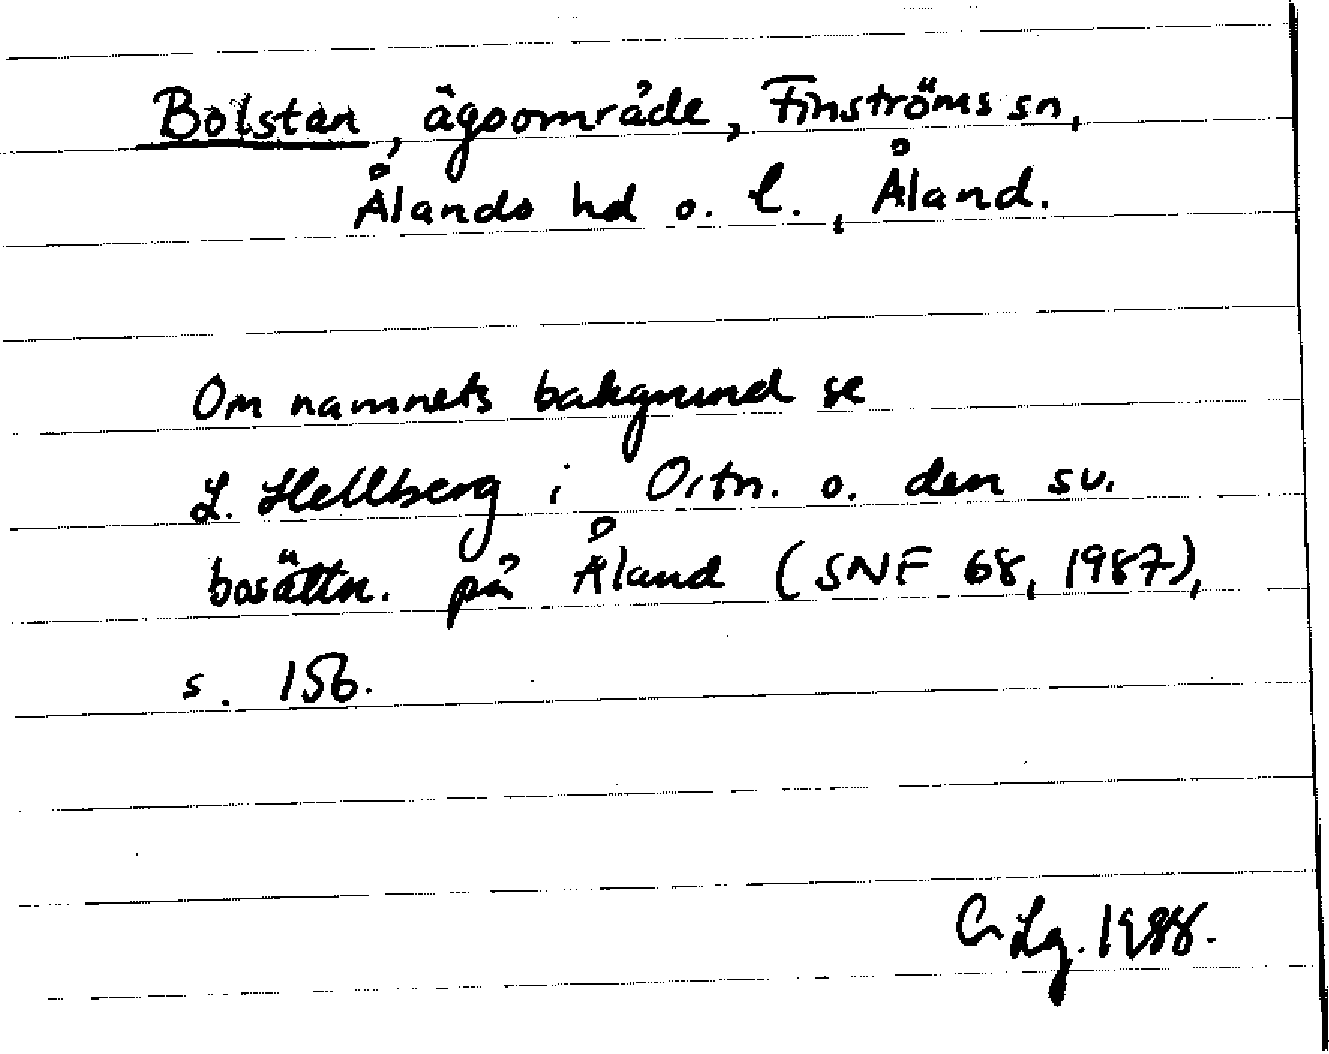 Bolstan, ägoområde, Finströms sn,
Ålands hd o. l., Åland.
Om namnets bakgrund se
L. Hellberg i Ortn. o. den sv.
bosättn. på Åland (SNF 68, 1987),
s. 156.
Lg. 1988.